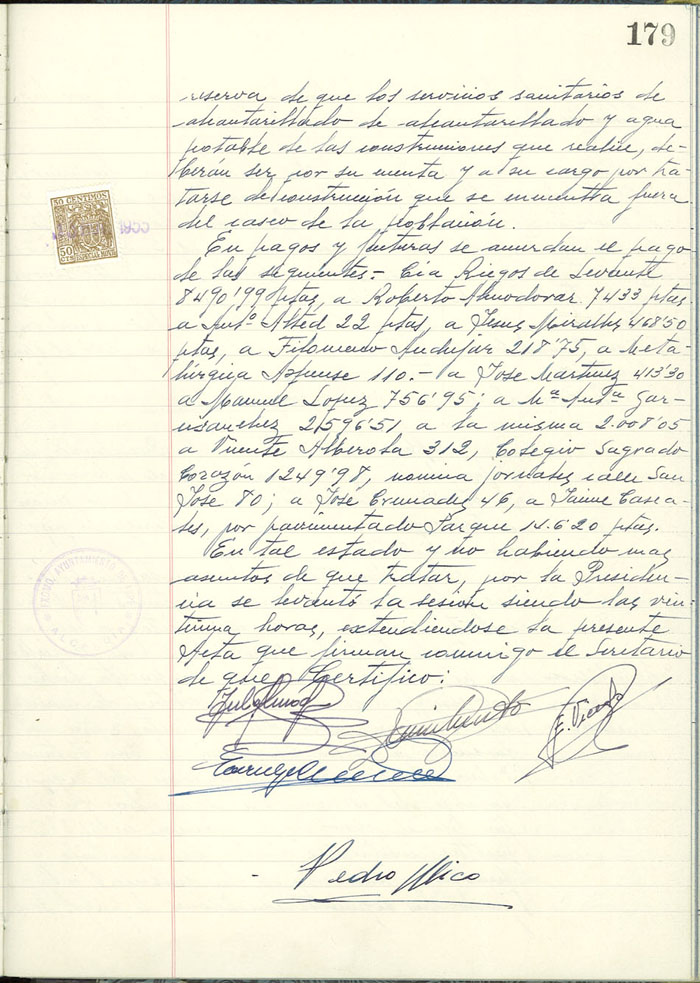 179
reserva de que los servicios sanitarios de
alcantarillado de alcantarillado y agua
potable de las construcciones que realice, de-
berán ser por su cuenta y a su cargo por tra-
tarse de construcción que se encuentra fuera
del casco de la población.
50 CENTIMOS
1955
50
En pagos y facturas se acuerdan el pago
de las siguientes.- Cia Riegos de Levante
8490'99 ptas, a Roberto Almodovar 7433 ptas.
a Antº Alted 22 ptas, a Jesus Miralles 468'50
ptas, a Filomeno Andujar 218'75, a Meta-
lúrgica Aspense 110.- a Jose Martinez 413'30
a Manuel Lopez 756'95; a Mª Antª Gar-
2,596'51 a la misma 2.008'05
a Vicente Alberola 312, Colegio Sagrado
Corazón 1249'98, nomina jornales calle San
José 80; a José Cremades 46, a Jaime
por pavimentado Parque 14.620 ptas.
En tal estado y no habiendo mas
asuntos de que tratar, por la Presiden-
cia se levantó la sesión siendo las vein-
tiuna horas, extendiendose la presente
Acta que firman conmigo el Secretario
de que Certifico:
AYUNTAMIENTO
E. Vicedo
Pedro Mico